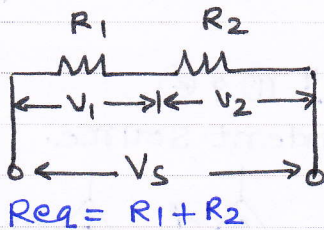 R1 R2
V1 V2
Vs
Req = R1 + R2